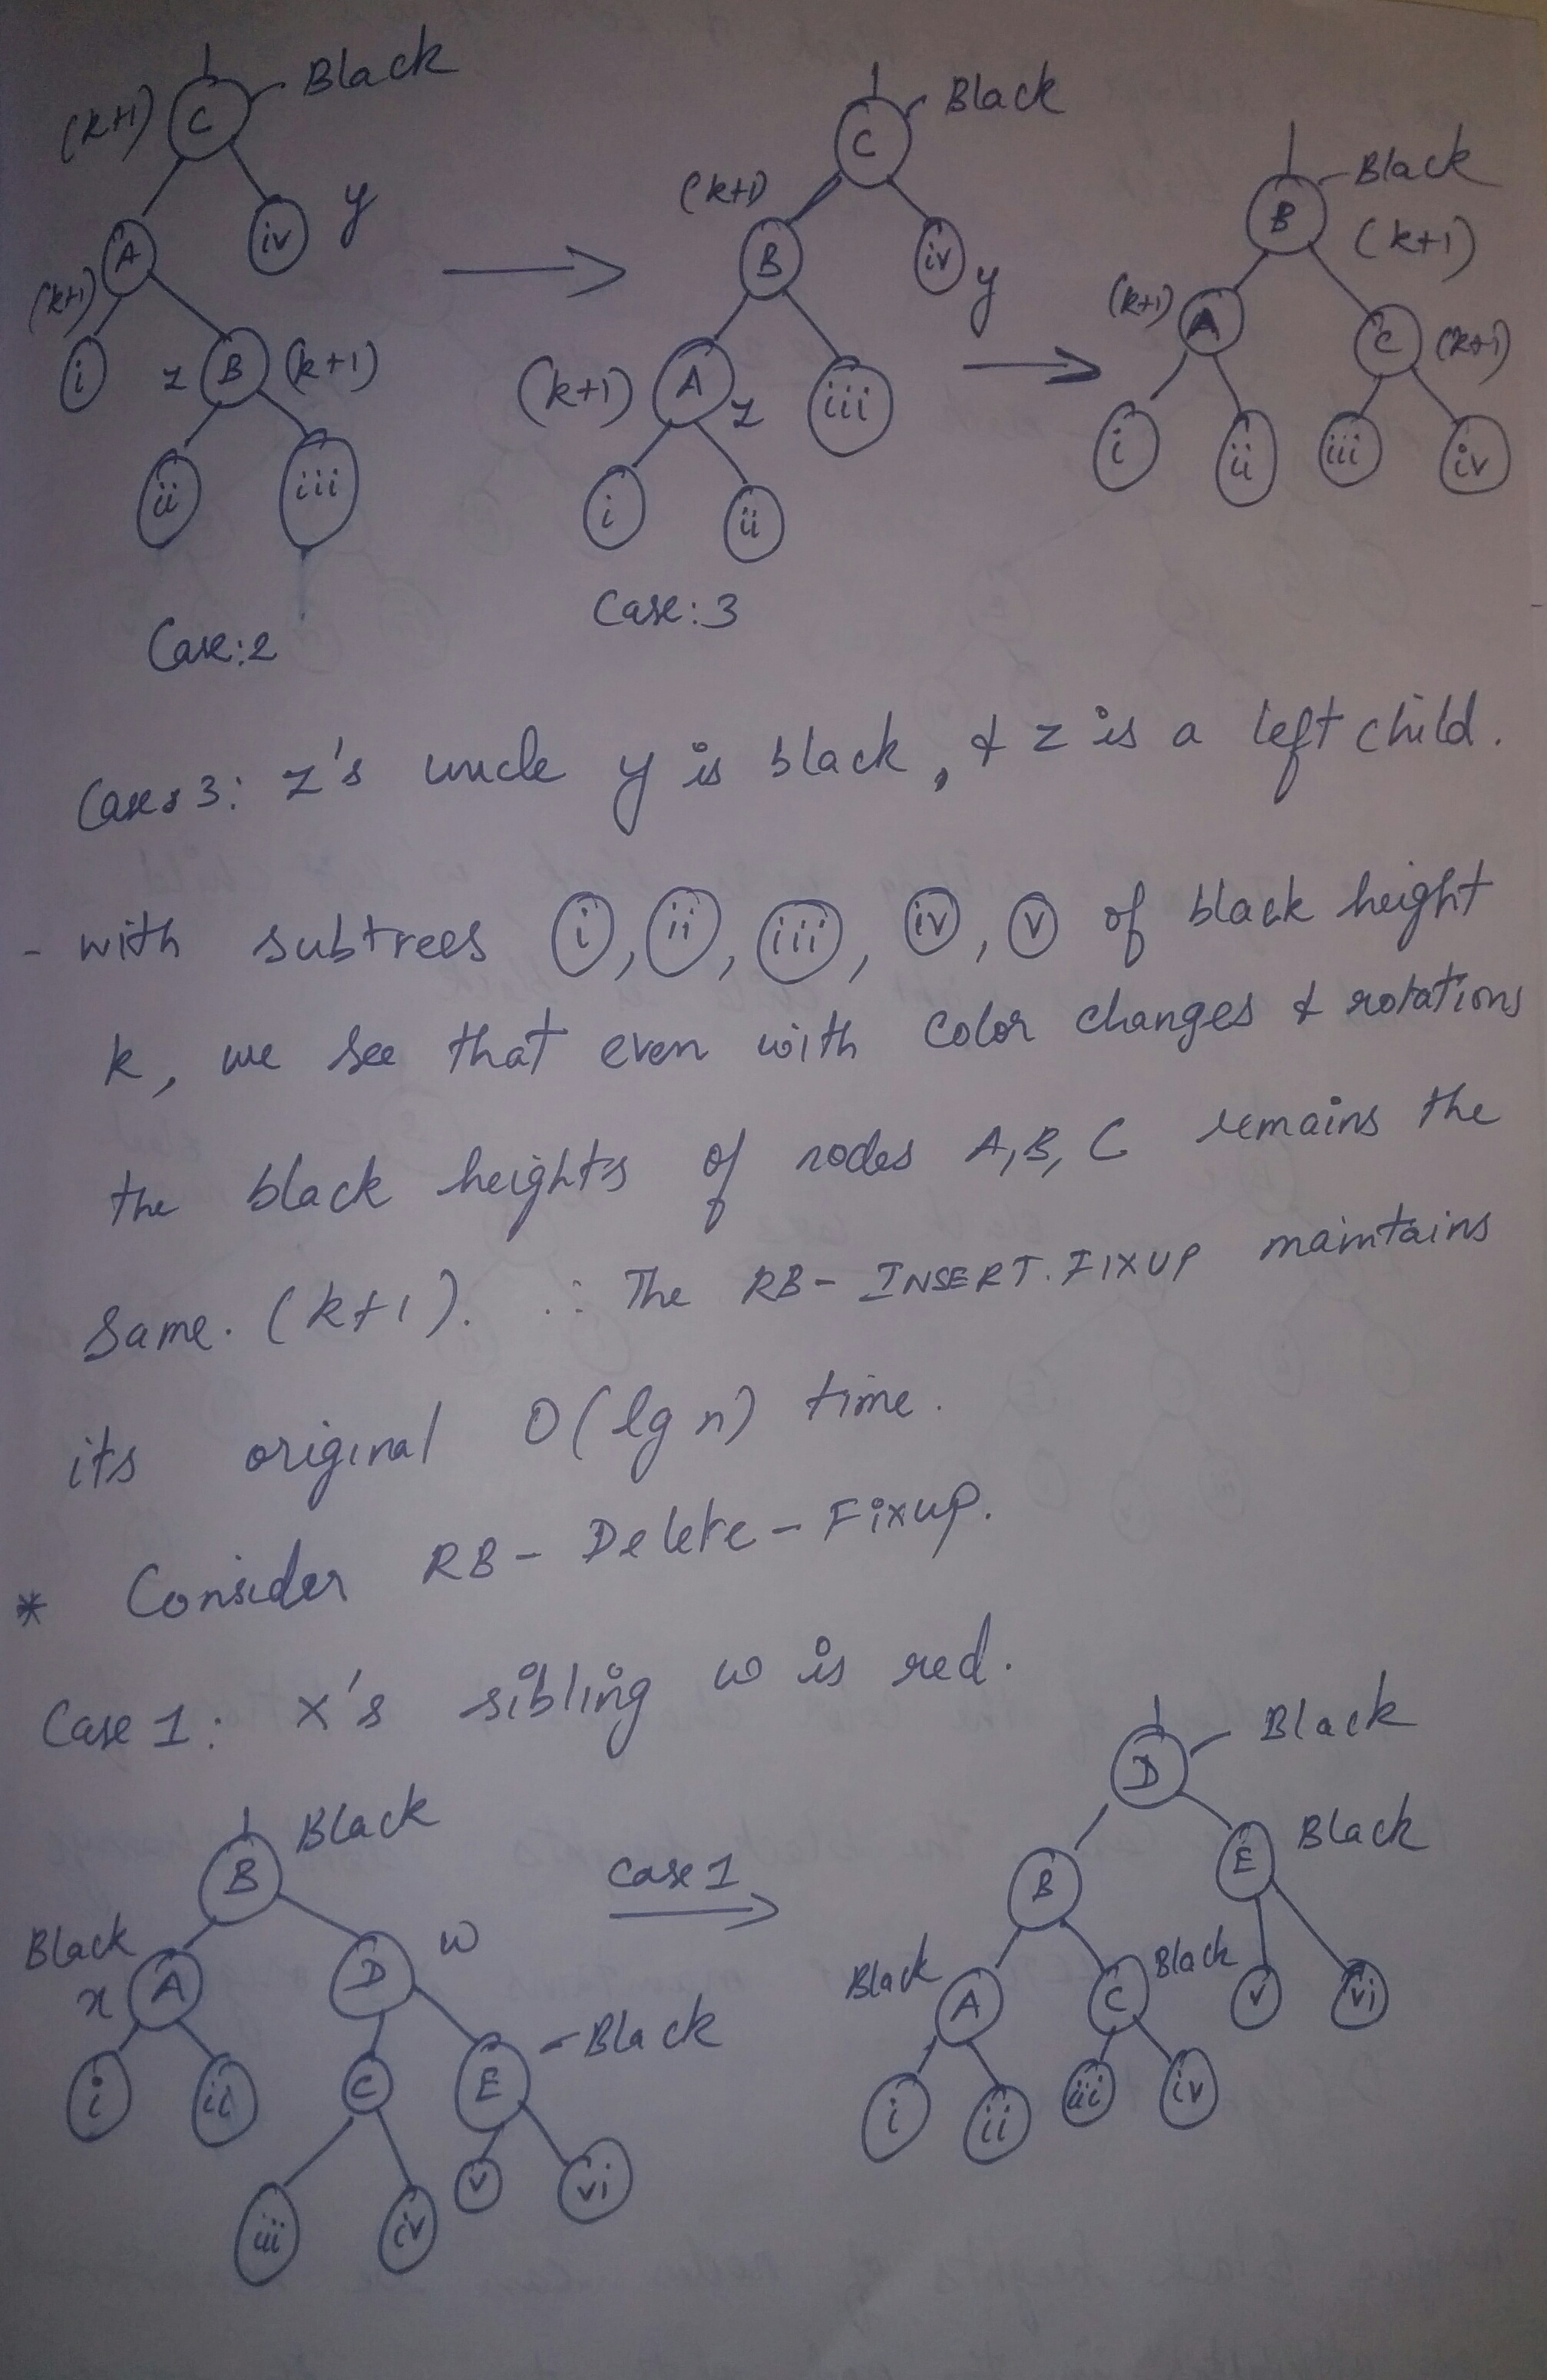 Black
(k+1) C
A iv y
(k+1)
i z B (k+1)
ii iii
Case:2
Black
C
(k+1)
B iv y
(k+1) A z iii
i ii
Case:3
Black
B (k+1)
(k+1) A C (k+1)
i ii iii iv
Cases 3: z's uncle y is black, & z is a left child.
- with subtrees i, ii, iii, iv, v of black height
k, we see that even with color changes & rotations
the black heights of nodes A, B, C remains the
same. (k+1). ∴ The RB-INSERT.FIXUP maintains
its original O(lg n) time.
* Consider RB-Delete-Fixup.
Case 1: x's sibling w is red.
Black
B
Black
x A D w
i ii C E - Black
iii iv v vi
case 1
D Black
B E Black
Black A C Black v vi
i ii iii iv